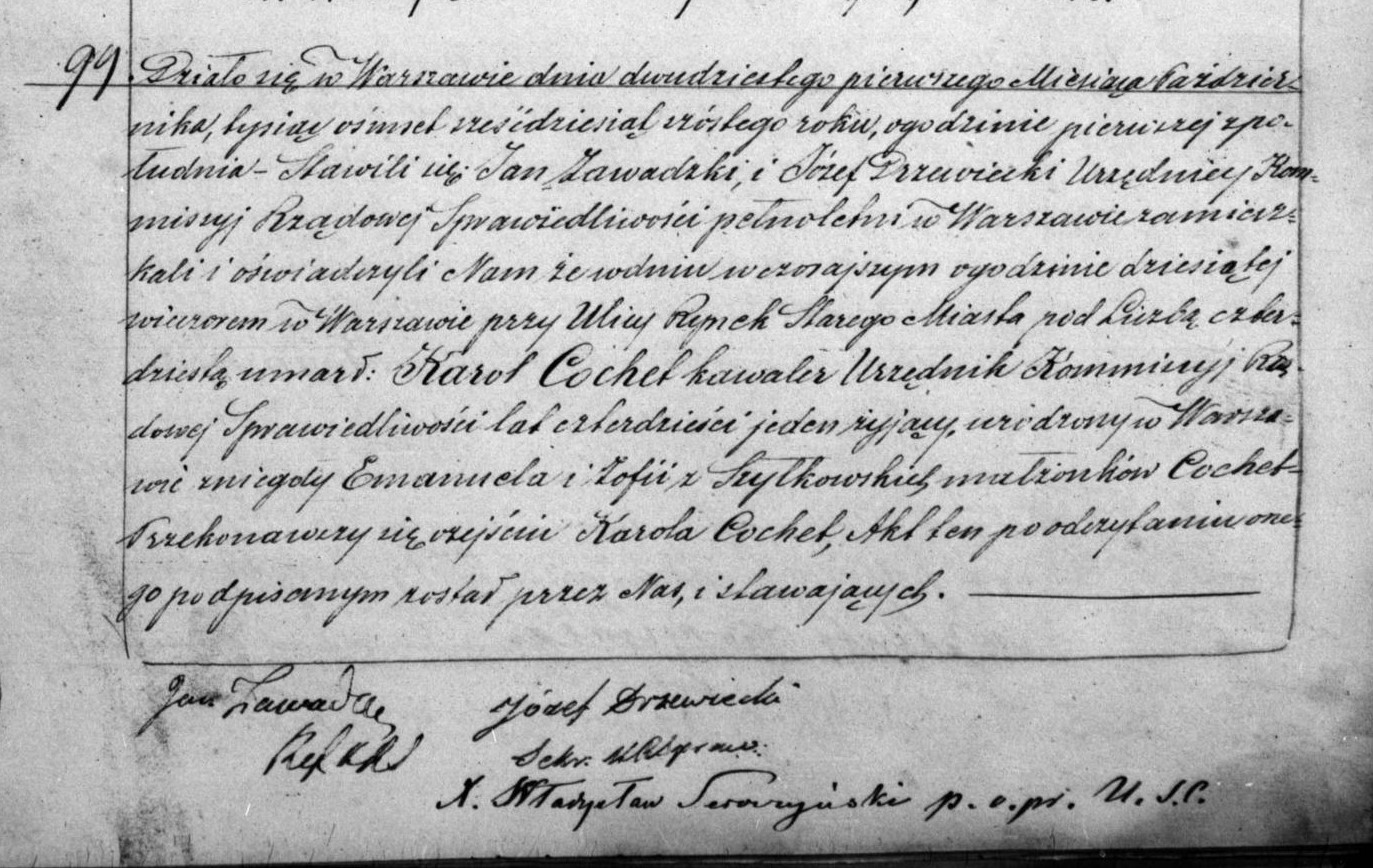 99 Działo się w Warszawie dnia dwudziestego pierwszego Miesiąca Paździer-
nika, tysiąc ośmset sześćdziesiąt szóstego roku, o godzinie pierwszej z po-
łudnia – Stawili się: Jan Zawadzki, i Józef Drzewiecki Urzędnicy Kom-
missyj Rządowej Sprawiedliwości pełnoletni w Warszawie zamiesz-
kali i oświadczyli Nam że w dniu wczorajszym o godzinie dziesiątej
wieczorem w Warszawie przy Ulicy Rynek Starego Miasta pod Liczbą czter-
dziestą umarł: Karol Cochet kawaler Urzędnik Kommissyj Rzą-
dowej Sprawiedliwości lat czterdzieści jeden żyjący, urodzony w Warsza-
wie z niegdy Emanuela i Zofii z Szytkowskich małżonków Cochet –
Przekonawszy się o zejściu Karola Cochet, Akt ten po odczytaniu one-
go podpisanym został przez Nas, i stawających.
Jan Zawadzki Józef Drzewiecki
Sekr.
X. Władysław p. o. pr. U. S. C.